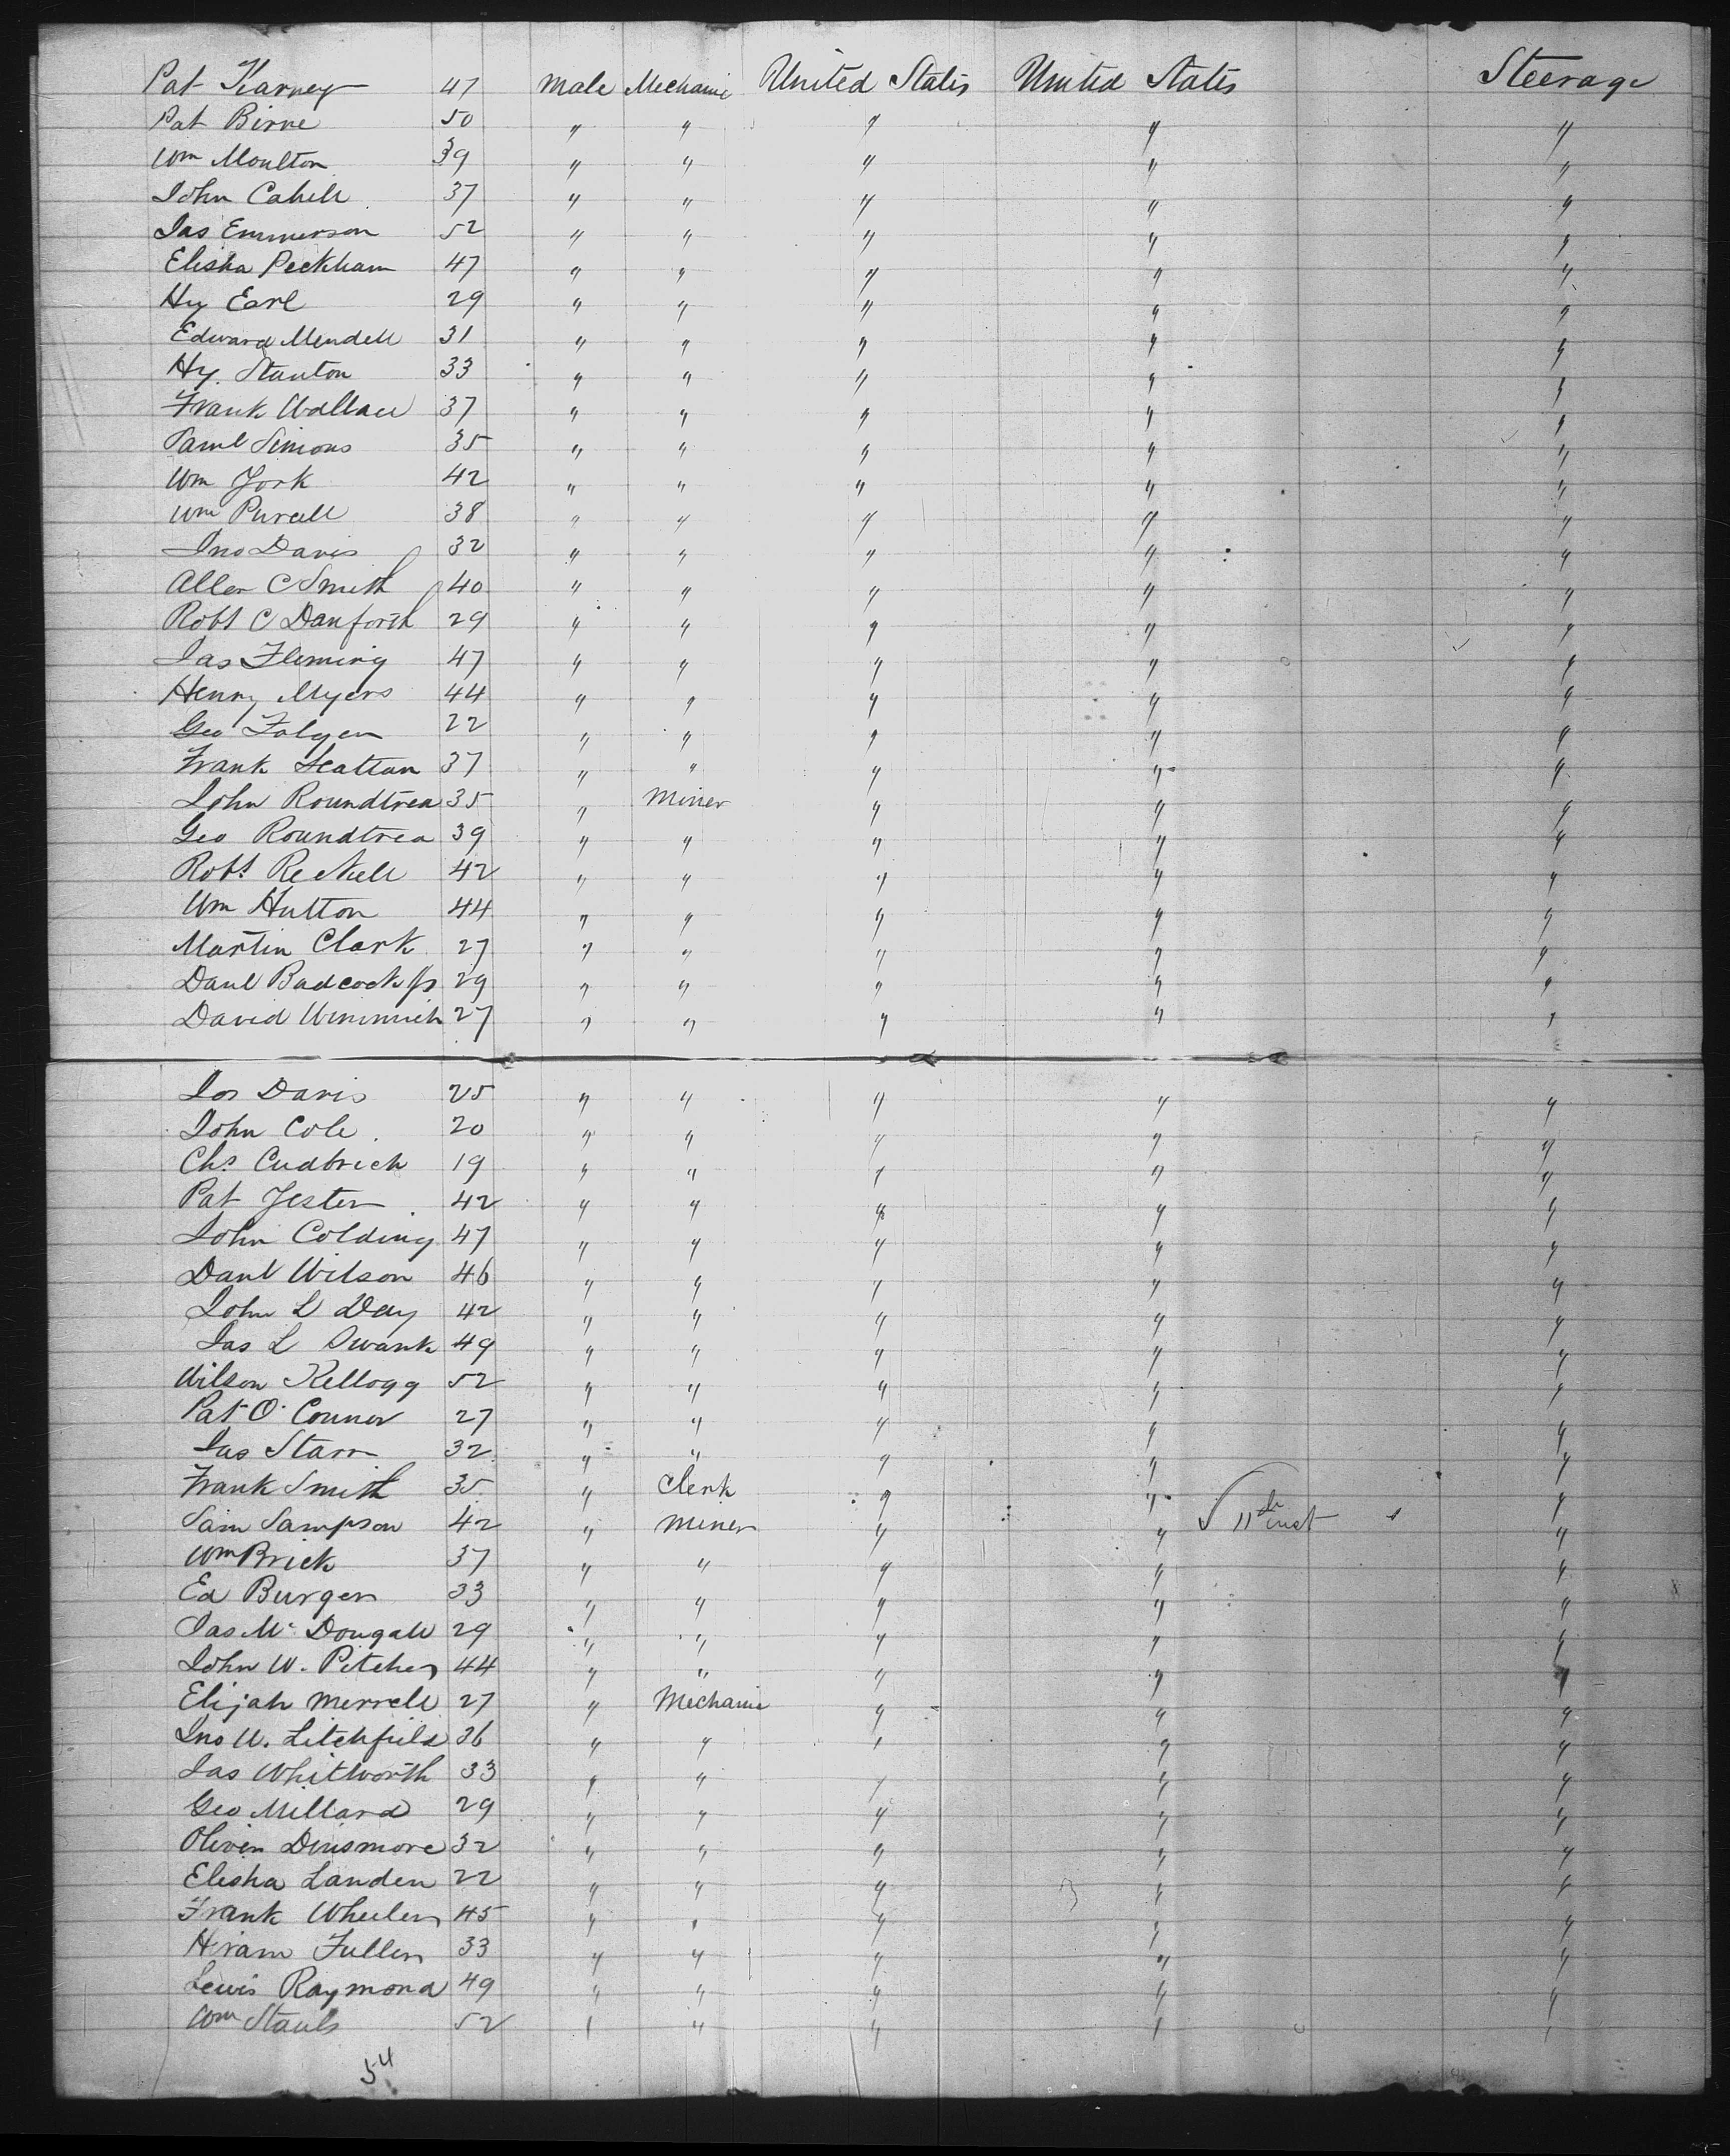 Pat Karney 47 Male Mechanic United States United States Steerage
Pat Birne 50 " " " " "
Wm Moulton 39 " " " " "
John Cahill 37 " " " " "
Jas Emmerson 52 " " " " "
Elisha Peckham 47 " " " " "
Hy Earl 29 " " " " "
Edward Mendell 31 " " " " "
Hy. Stanton 33 " " " " "
Frank Wallace 37 " " " " "
Saml Simons 35 " " " " "
Wm York 42 " " " " "
Wm Purcell 38 " " " " "
Jno Davis 32 " " " " "
Allen C Smith 40 " " " " "
Robt C Danforth 29 " " " " "
Jas Fleming 47 " " " " "
Henry Myers 44 " " " " "
Geo Folger 22 " " " " "
Frank 37 " " " " "
John Roundtrea 35 " Miner " " "
Geo Roundtrea 39 " " " " "
Robt 42 " " " " "
Wm Hutton 44 " " " " "
Martin Clark 27 " " " " "
Danl Badcock Jr 29 " " " " "
David 27 " " " " "
Jos Davis 25 " " " " "
John Cole 20 " " " " "
Chs. Cudbrich 19 " " " " "
Pat Jester 42 " " " " "
John Colding 47 " " " " "
Danl Wilson 46 " " " " "
John L Day 42 " " " " "
Jas L Swank 49 " " " " "
Wilson Kellogg 52 " " " " "
Pat O'Conner 27 " " " " "
Jas Starr 32 " " " " "
Frank Smith 35 " Clerk " " "
Sam Sampson 42 " Miner " " √ 11th inst "
Wm Brick 37 " " " " "
Ed Burger 33 " " " " "
Jas Mc Dougall 29 " " " " "
John W. Pitcher 44 " " " " "
Elijah Merrell 27 " Mechanic " " "
Jno W. Litchfield 36 " " " " "
Jas Whitworth 33 " " " " "
Geo Millard 29 " " " " "
Oliver Dinsmore 32 " " " " "
Elisha Landen 22 " " " " "
Frank Wheeler 45 " " " " "
Hiram Fuller 33 " " " " "
Lewis Raymond 49 " " " " "
Wm 52 " " " " "
54